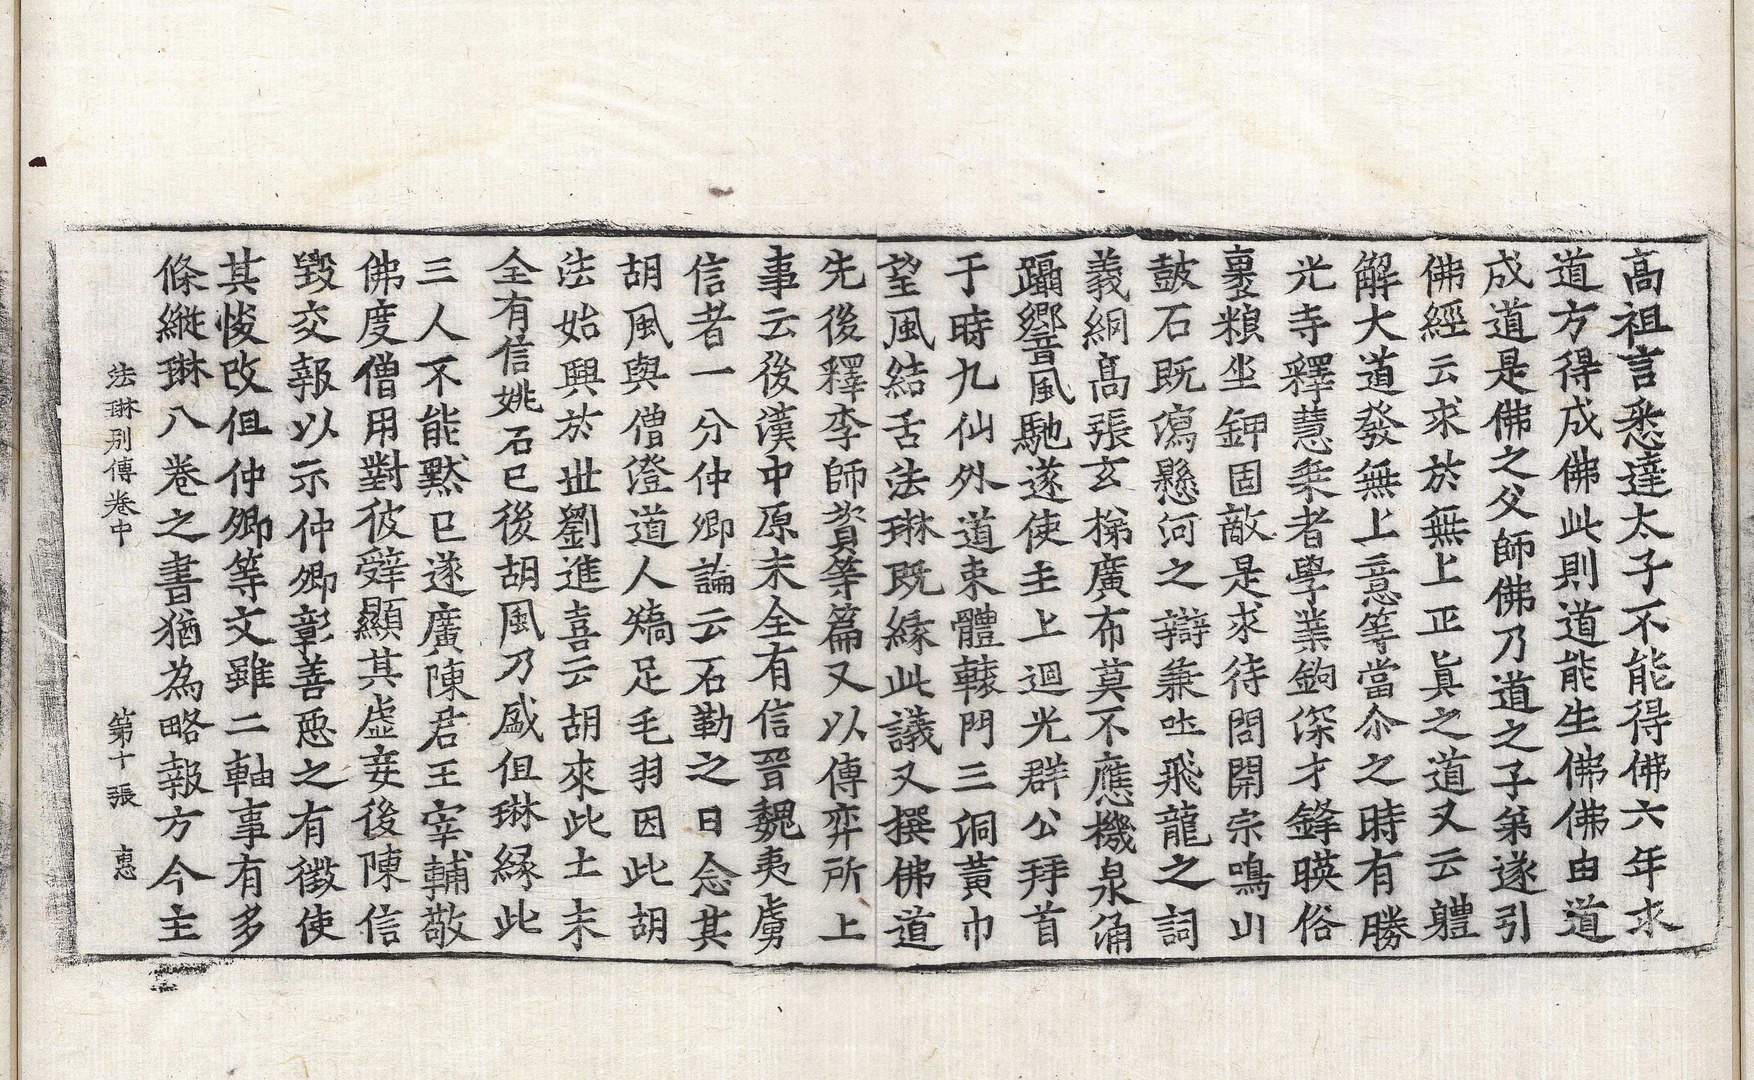 高祖言悉達太子不能得佛六年求
道方得成佛此則道能生佛佛由道
成道是佛之父師佛乃道之子弟遂引
佛經云求於無上正眞之道又云體
解大道發無上意等當尒之時有勝
光寺釋慧乘者學業鉤深才鋒暎俗
裹粮坐鉀固敵是求待問開宗鳴山
皷石既瀉懸河之辯兼吐飛龍之詞
義網高張玄梯廣布莫不應機泉涌
躡響風馳遂使主上迴光群公拜首
于時九仙外道束體轅門三洞黃巾
望風結舌法琳既緣此議又撰佛道
先後釋李師資等篇又以傅弈所上
事云後漢中原未全有信晉魏夷虜
信者一分仲卿論云石勒之日念其
胡風與僧澄道人矯足毛羽因此胡
法始興於世劉進喜云胡來此土未
全有信姚石已後胡風乃盛但琳緣此
三人不能默已遂廣陳君王宰輔敬
佛度僧用對彼辭顯其虛妄後陳信
毀交報以示仲卿彰善惡之有徵使
其悛改但仲卿等文雖二軸事有多
條縱琳八卷之書猶為略報方今主
法琳別傳卷中　第十張　惠